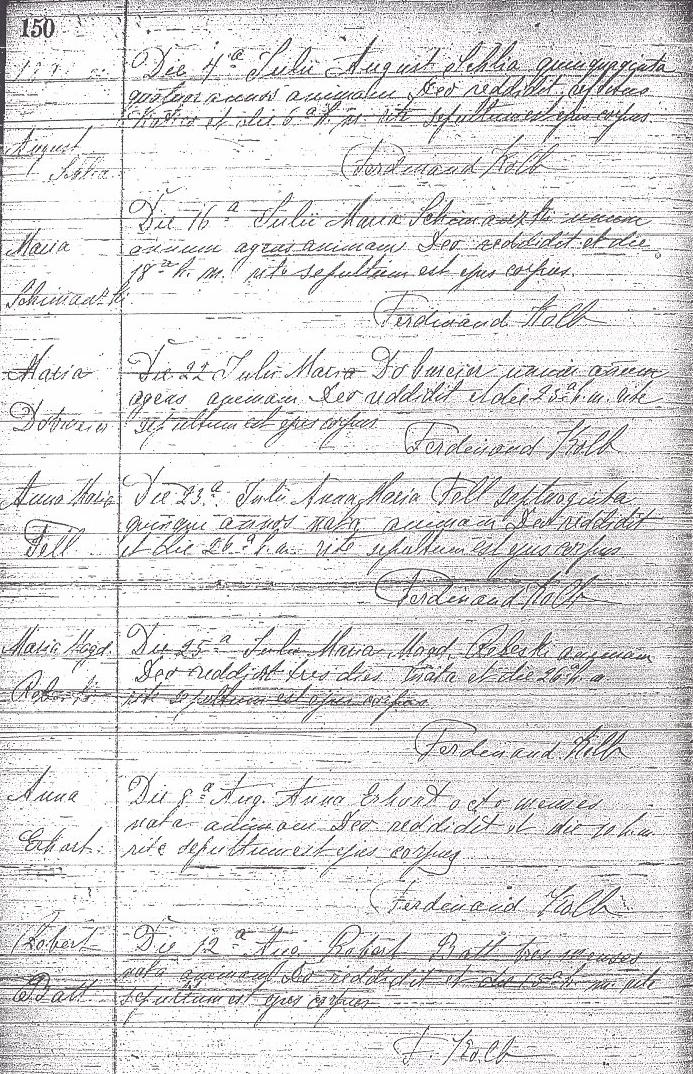 150
August
Die 4ª Julii August Schlia quinquaginta
quatuor annos animam Deo reddidit
et die 6ª h. m. rite sepultum est ejus corpus
Ferdinand Kolb
Maria
Schimanski
Die 16ª Julii Maria Schimanski unum
annum agens animam Deo reddidit et die
18ª h. m. rite sepultum est ejus corpus.
Ferdinand Kolb
Maria
Die 22 Julii Maria unum annum
agens animam Deo reddidit et die 23ª h. m. rite
sepultum est ejus corpus
Ferdinand Kolb
Anna Maria
Fell
Die 23ª Julii Anna Maria Fell septuaginta
quinque annos nata animam Deo reddidit
et die 26ª h. m. rite sepultum est ejus corpus
Ferdinand Kolb
Maria Magd.
Die 25ª Julii Maria Magd. animam
Deo reddidit tres dies nata et die 26ª h. m.
rite sepultum est ejus corpus
Ferdinand Kolb
Anna
Erhart
Die 8ª Aug. Anna Erhart octo menses
nata animam Deo reddidit et die 10 h. m.
rite sepultum est ejus corpus
Ferdinand Kolb
Robert
Batt
Die 12ª Aug. Robert Batt tres menses
nata animam Deo reddidit et die 13ª h. m. rite
sepultum est ejus corpus
F. Kolb